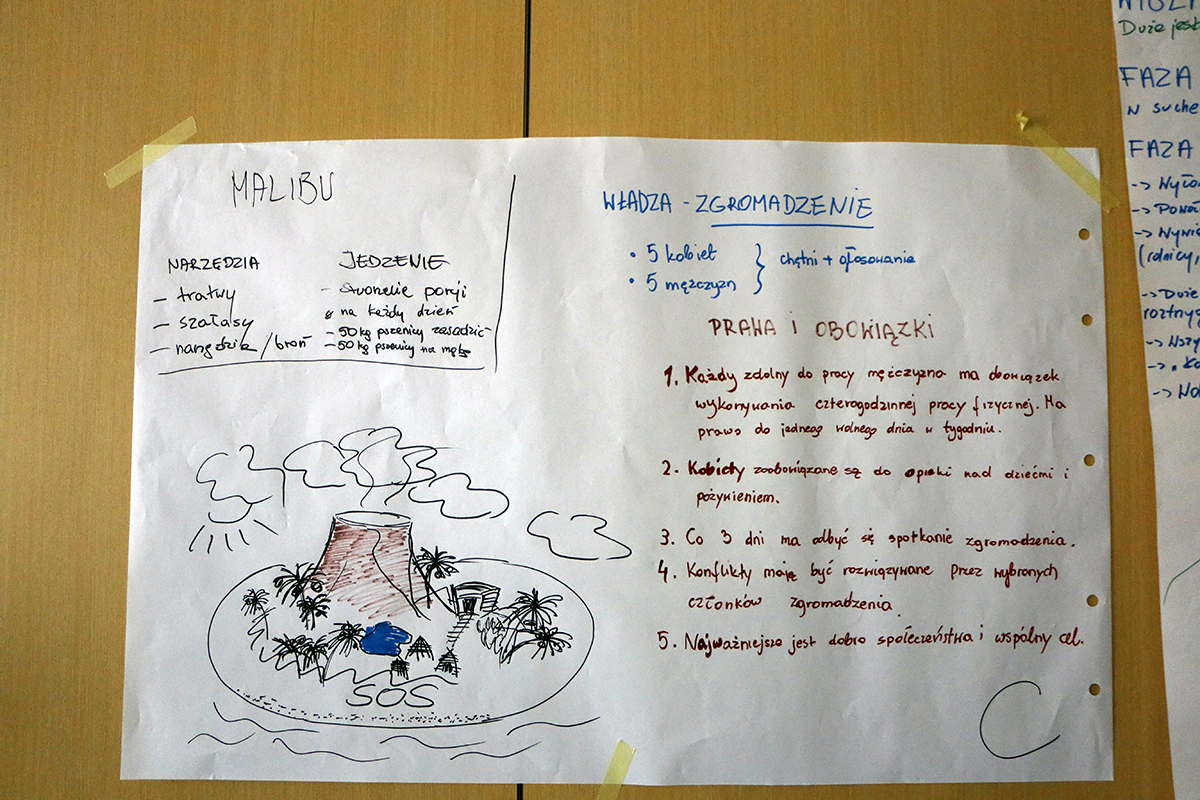 MALIBU
NARZĘDZIA
– tratwy
– szałasy
– narzędzia / broń
JEDZENIE
– stworzenie porcji
na każdy dzień
– 50 kg pszenicy zasadzić
– 50 kg pszenicy na mąkę
SOS
WŁADZA - ZGROMADZENIE
• 5 kobiet
• 5 mężczyzn
chętni + głosowanie
PRAWA I OBOWIĄZKI
1. Każdy zdolny do pracy mężczyzna ma obowiązek
wykonywania czterogodzinnej pracy fizycznej. Ma
prawo do jednego wolnego dnia w tygodniu.
2. Kobiety zoobowiązane są do opieki nad dziećmi i
pożywieniem.
3. Co 3 dni ma odbyć się spotkanie zgromadzenia.
4. Konflikty mają być rozwiązywane przez wybranych
członków zgromadzenia.
5. Najważniejsze jest dobro społeczeństwa i wspólny cel.
C
Duże jest
FAZA
W suche
FAZA
->
->
->
(rolnicy,
-> Duże
->
->
->